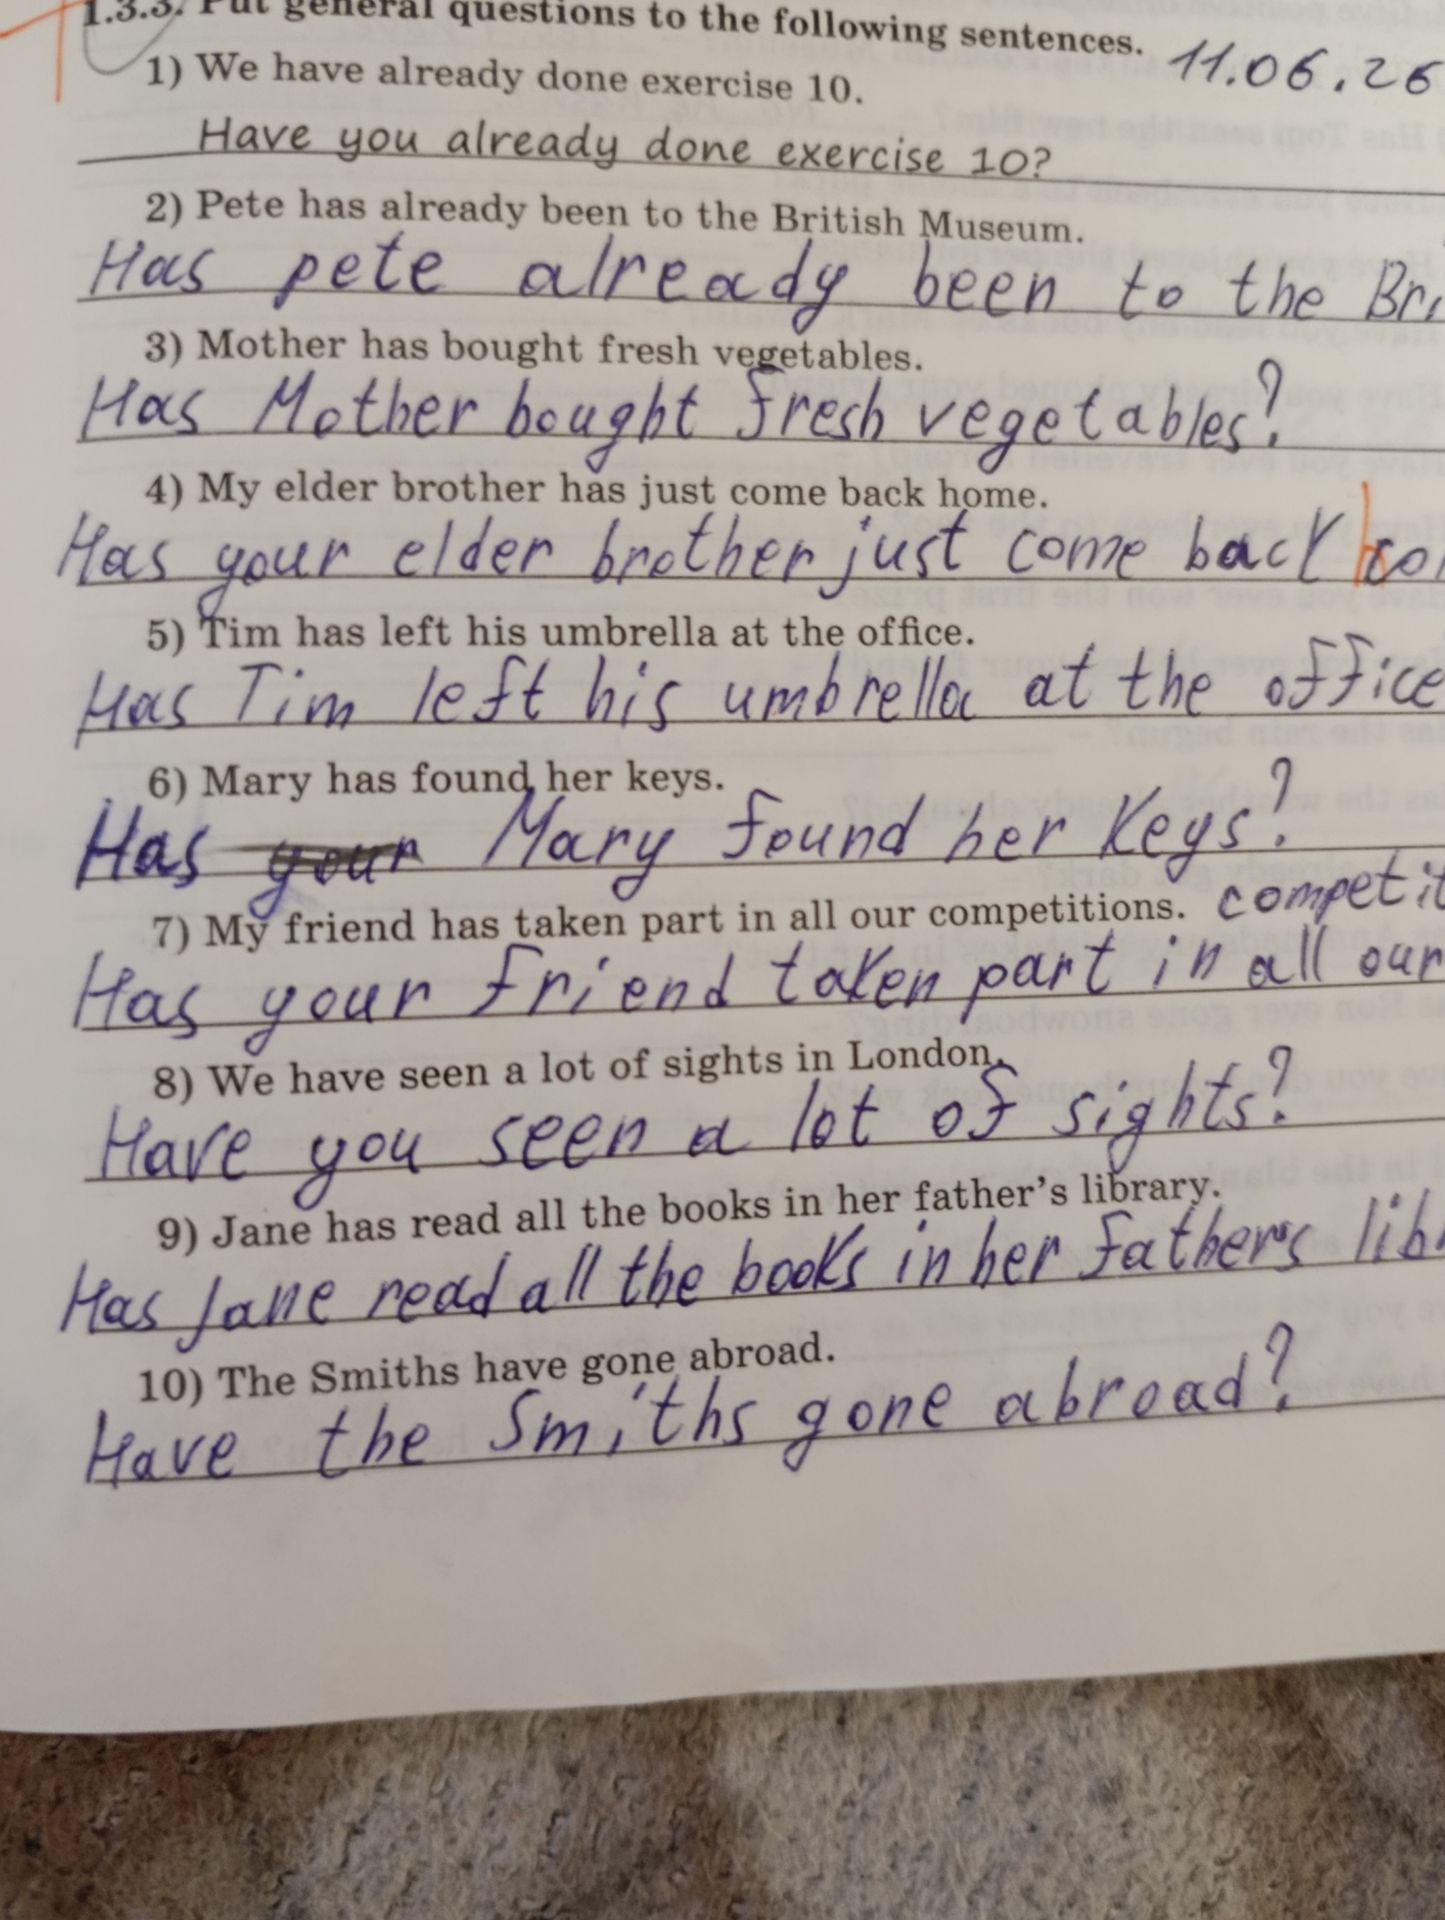 1.3.3. Put general questions to the following sentences.
11.06.26
1) We have already done exercise 10.
Have you already done exercise 10?
2) Pete has already been to the British Museum.
Has pete already been to the Bri
3) Mother has bought fresh vegetables.
Has Mother bought fresh vegetables?
4) My elder brother has just come back home.
Has your elder brother just come back
5) Tim has left his umbrella at the office.
Has Tim left his umbrella at the office
6) Mary has found her keys.
Has your Mary found her keys?
7) My friend has taken part in all our competitions.
competit
Has your friend taken part in all our
8) We have seen a lot of sights in London.
Have you seen a lot of sights?
9) Jane has read all the books in her father's library.
Has Jane read all the books in her father's lib
10) The Smiths have gone abroad.
Have the Smiths gone abroad?